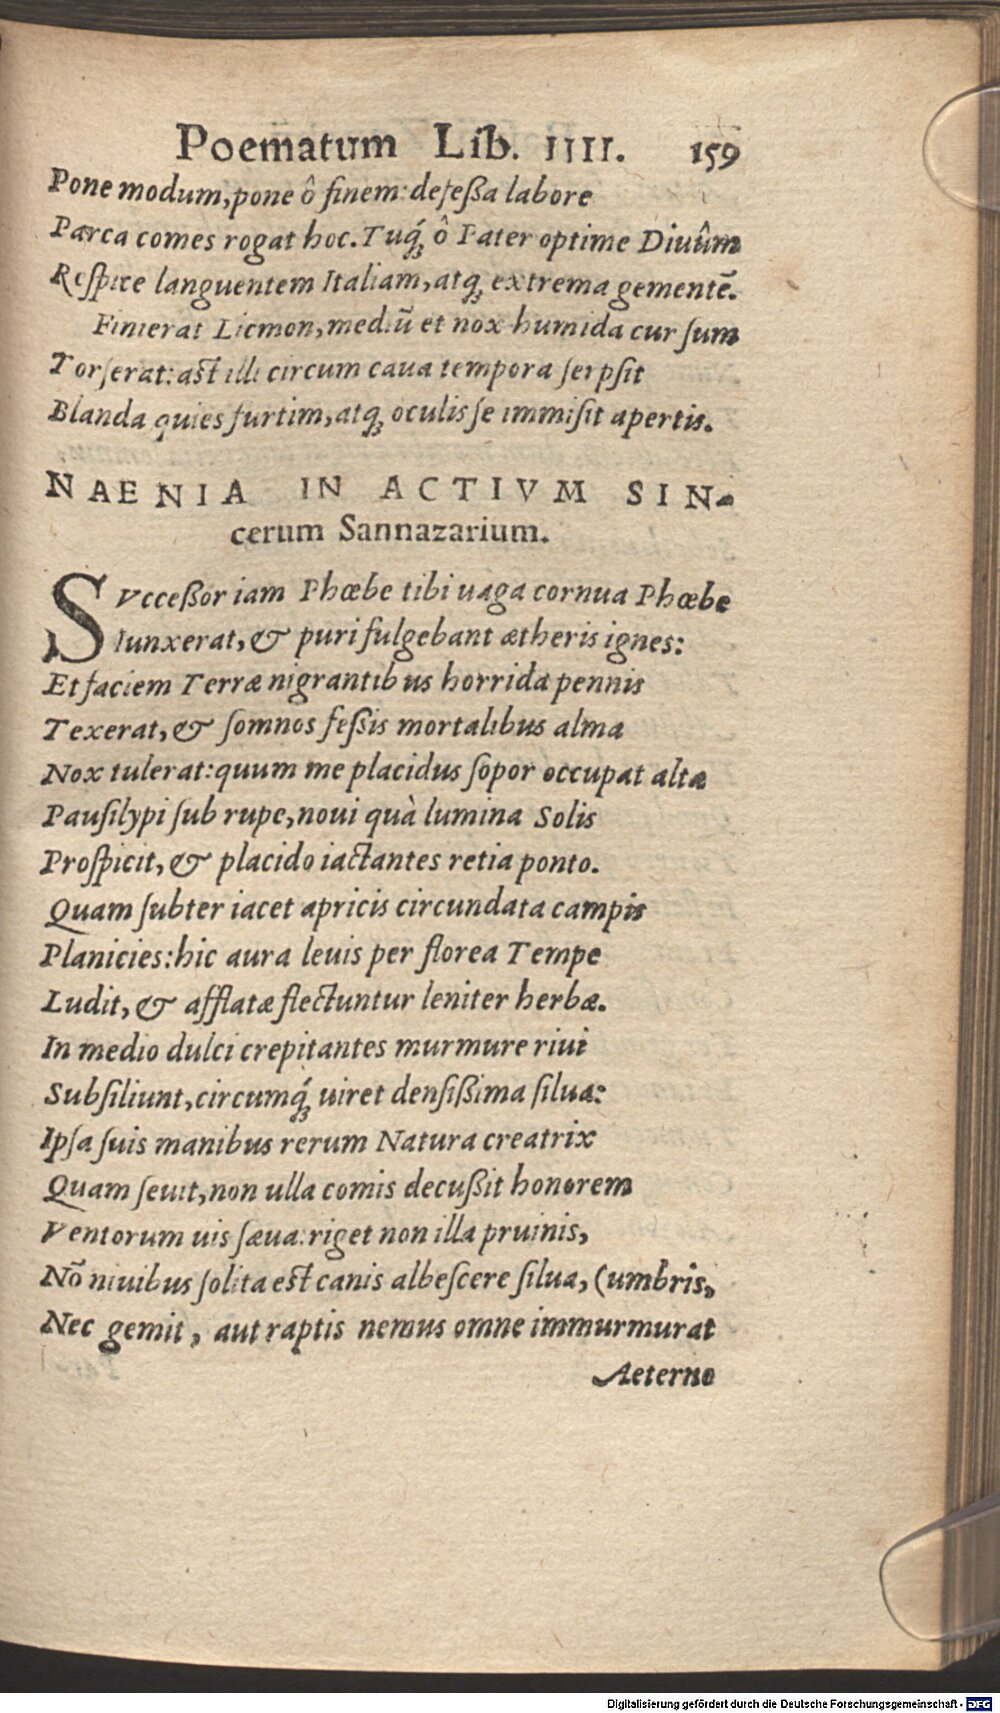 Poematum Lib. IIII. 159
Pone modum, pone ô finem: defeßa labore
Parca comes rogat hoc. Tuq́ꝫ ô Pater optime Diuûm
Reſpice languentem Italiam, atqꝫ extrema gementē.
Finierat Licmon, mediū et nox humida curſum
Torſerat: aſt illi circum caua tempora ſerpſit
Blanda quies furtim, atqꝫ oculis ſe immiſit apertis.
NAENIA IN ACTIVM SIN-
cerum Sannazarium.
SVcceßor iam Phœbe tibi uaga cornua Phœbe
Iunxerat, & puri fulgebant ætheris ignes:
Et faciem Terræ nigrantibus horrida pennis
Texerat, & ſomnos feßis mortalibus alma
Nox tulerat: quum me placidus ſopor occupat alta
Pauſilypi ſub rupe, noui quà lumina Solis
Proſpicit, & placido iactantes retia ponto.
Quam ſubter iacet apricis circundata campis
Planicies: hic aura leuis per florea Tempe
Ludit, & afflatæ flectuntur leniter herbæ.
In medio dulci crepitantes murmure riui
Subſiliunt, circumq́ꝫ uiret denſißima ſilua:
Ipſa ſuis manibus rerum Natura creatrix
Quam ſeuit, non ulla comis decußit honorem
Ventorum uis ſæua: riget non illa pruinis,
Nō niuibus ſolita eſt canis albeſcere ſilua, (umbris,
Nec gemit, aut raptis nemus omne immurmurat
Aeterno
Digitalisierung gefördert durch die Deutsche Forschungsgemeinschaft - DFG